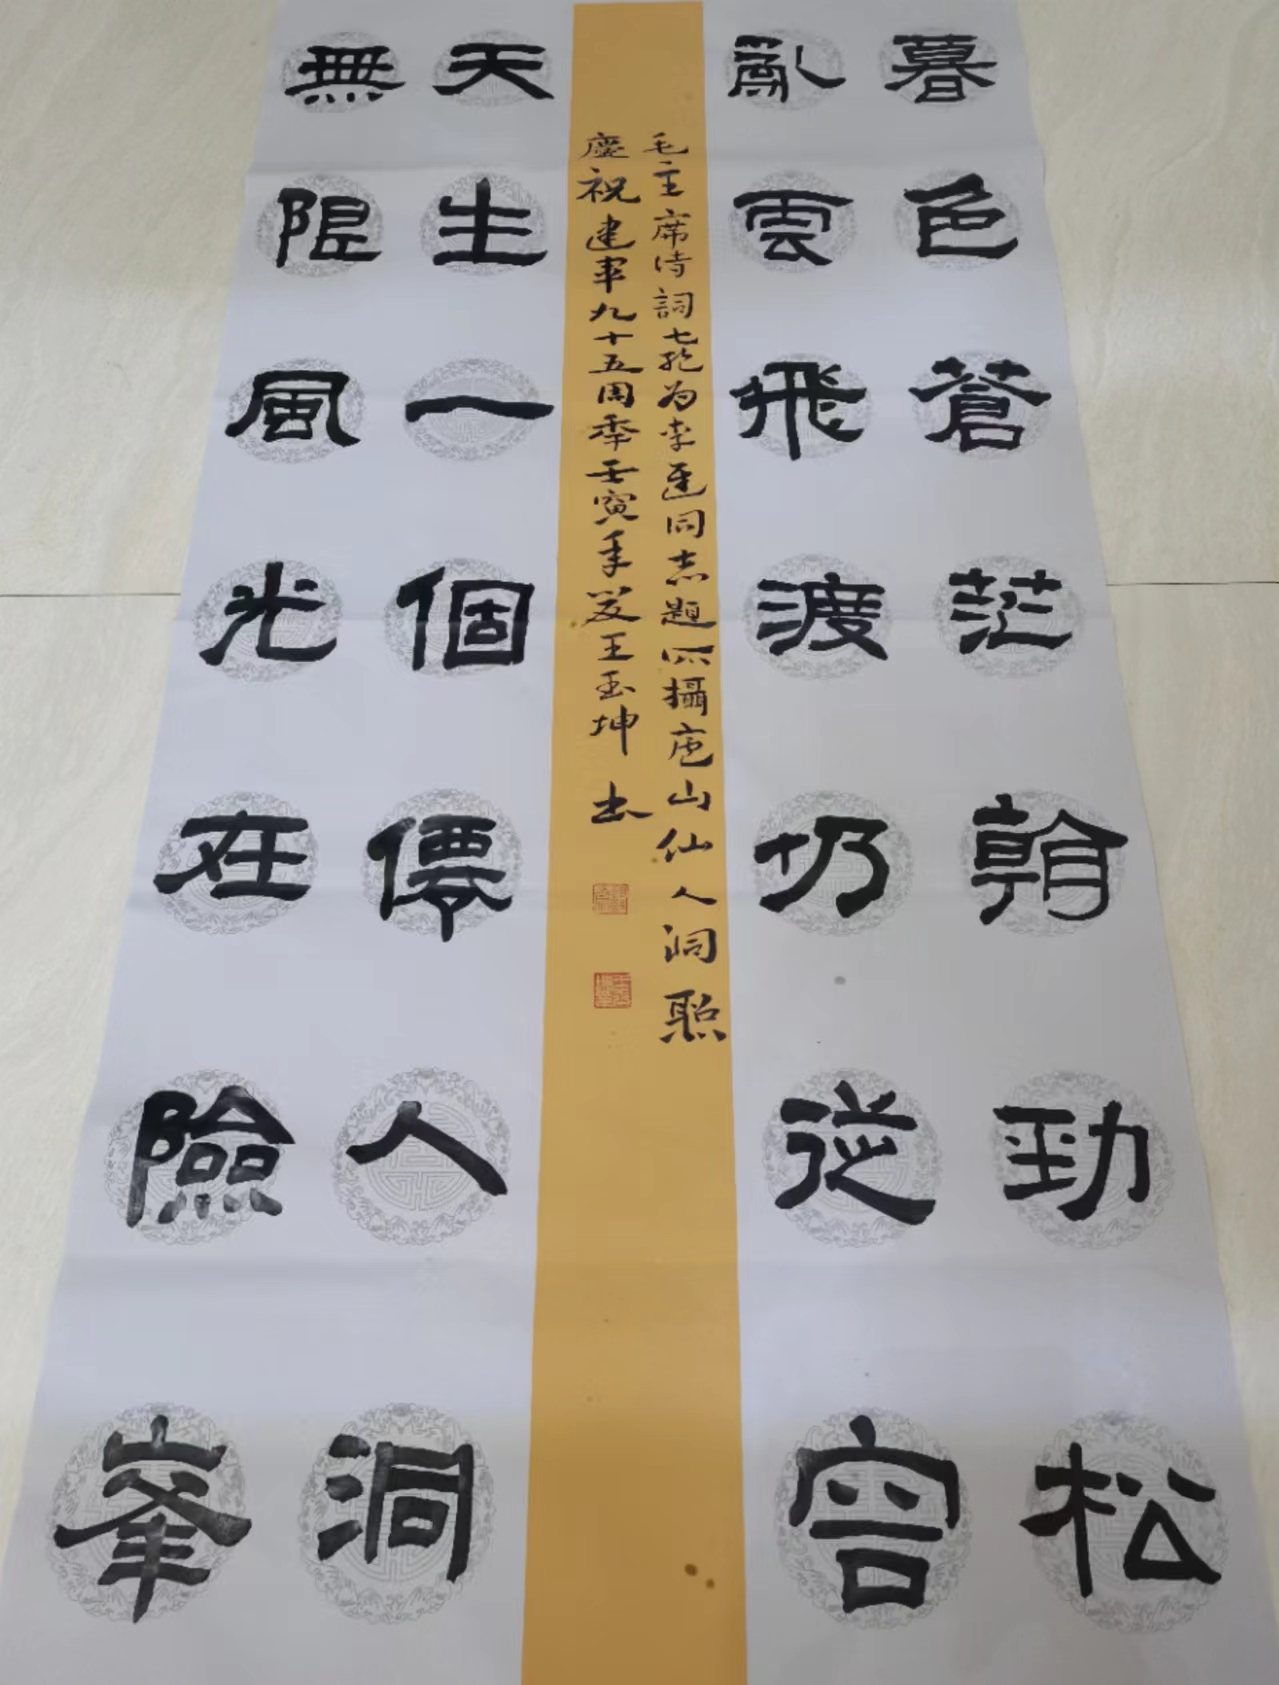 暮色蒼茫看勁松
亂雲飛渡仍從容
毛主席诗詞七絕为李進同志題所攝庐山仙人洞照
慶祝建軍九十五周秊壬寅年夏王玉坤书
天生一個僊人洞
無限風光在險峯